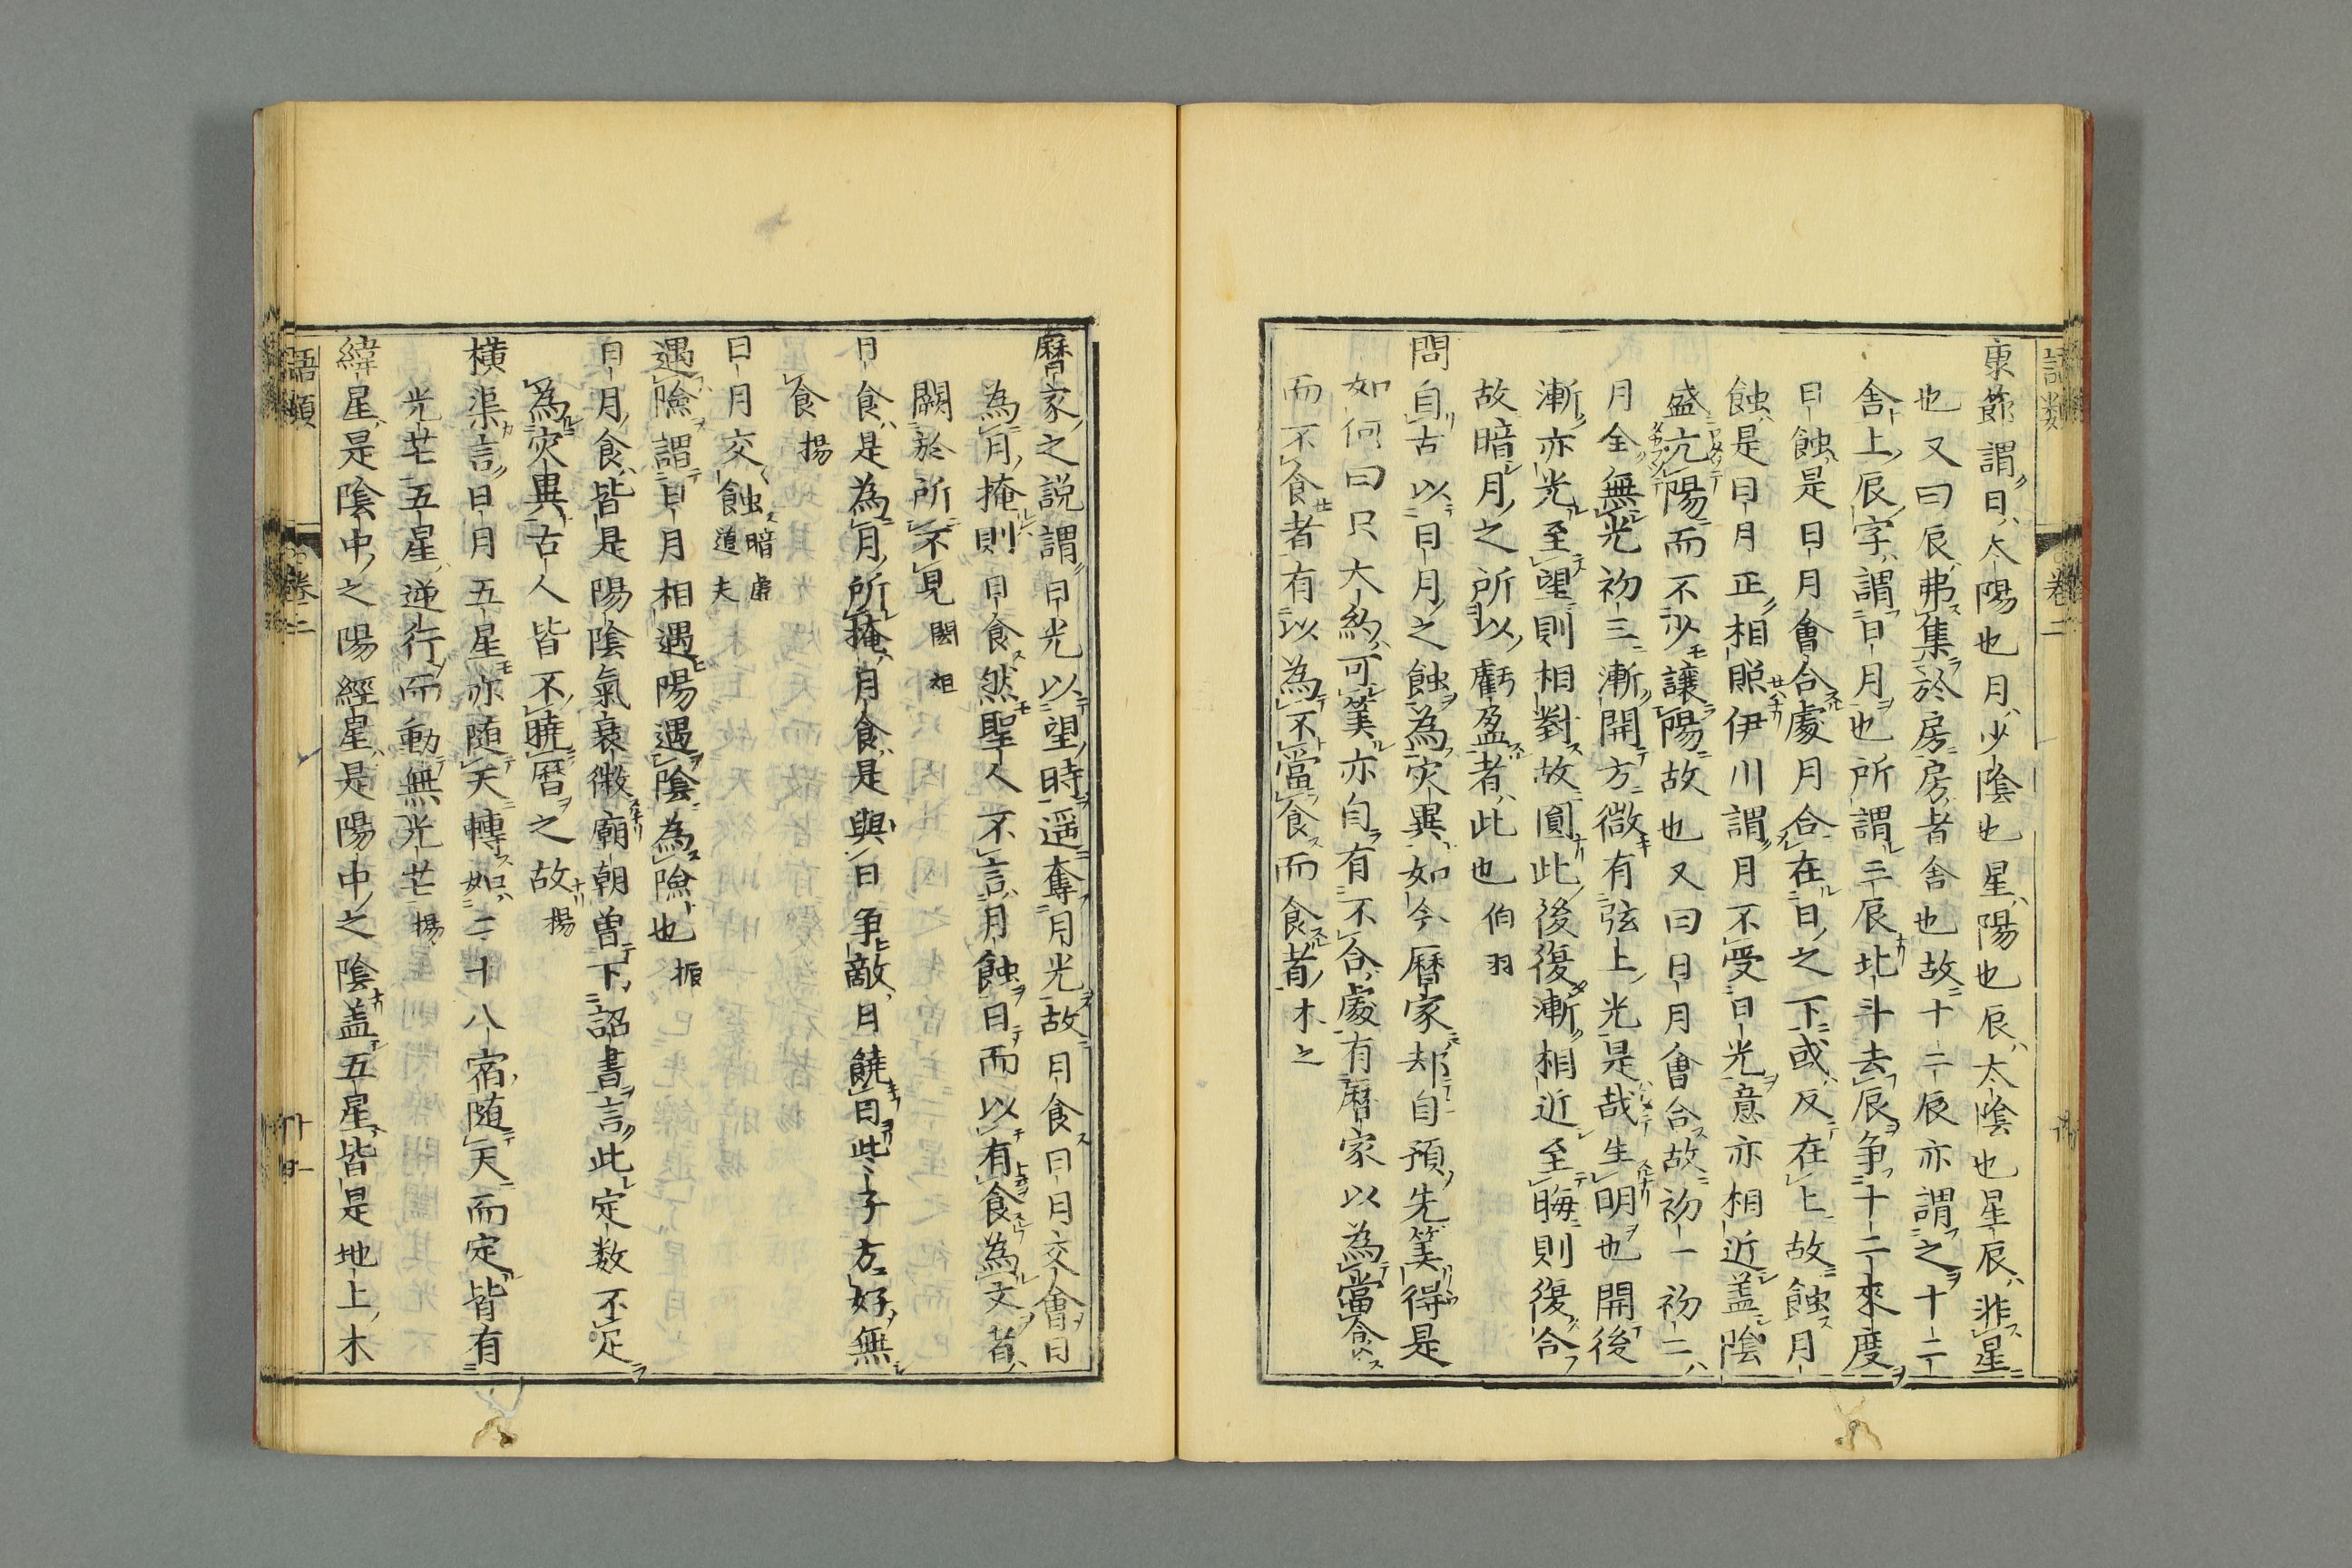 康節謂日太陽也月少陰也星陽也辰太陰也星辰非星
也又曰辰弗集於房房者舎也故十二辰亦謂之十二
舎上辰字謂日月也所謂三辰北斗去辰争十二來度
日蝕是日月會合處月合在日之下或反在上故蝕月
蝕是日月正相照伊川謂月不受日光意亦相近盖陰
盛亢陽而不少讓陽故也又曰日月會合故初一初二
月全無光初三漸開方微有弦上光是哉生明也開後
漸亦光至望則相對故圓此後復漸相近至晦則復合
故暗月之所以虧盈者此也伯羽
問自古以日月之蝕為灾異如今曆家却自預先筭得是
如何曰只大約可筭亦自有不合處有曆家以為當食
而不食者有以為不當食而食者木之
曆家之説謂日光以望時遥奪月光故月食日月交會日
為月掩則日食然聖人不言月蝕日而以有食為文者
闕於所不見閎祖
日食是為月所掩月食是與日争敵月饒日些子方好無
食揚
日月交蝕暗虗道夫
遇險謂日月相遇陽遇陰為險也振
日月食皆是陽陰氣衰微廟朝曽下詔書言此定数不足
為灾異古人皆不曉曆之故揚
横渠言日月五星亦随天轉如二十八宿随天而定皆有
光芒五星逆行而動無光芒揚
緯星是陰中之陽經星是陽中之陰盖五星皆是地上木
語類
卷二